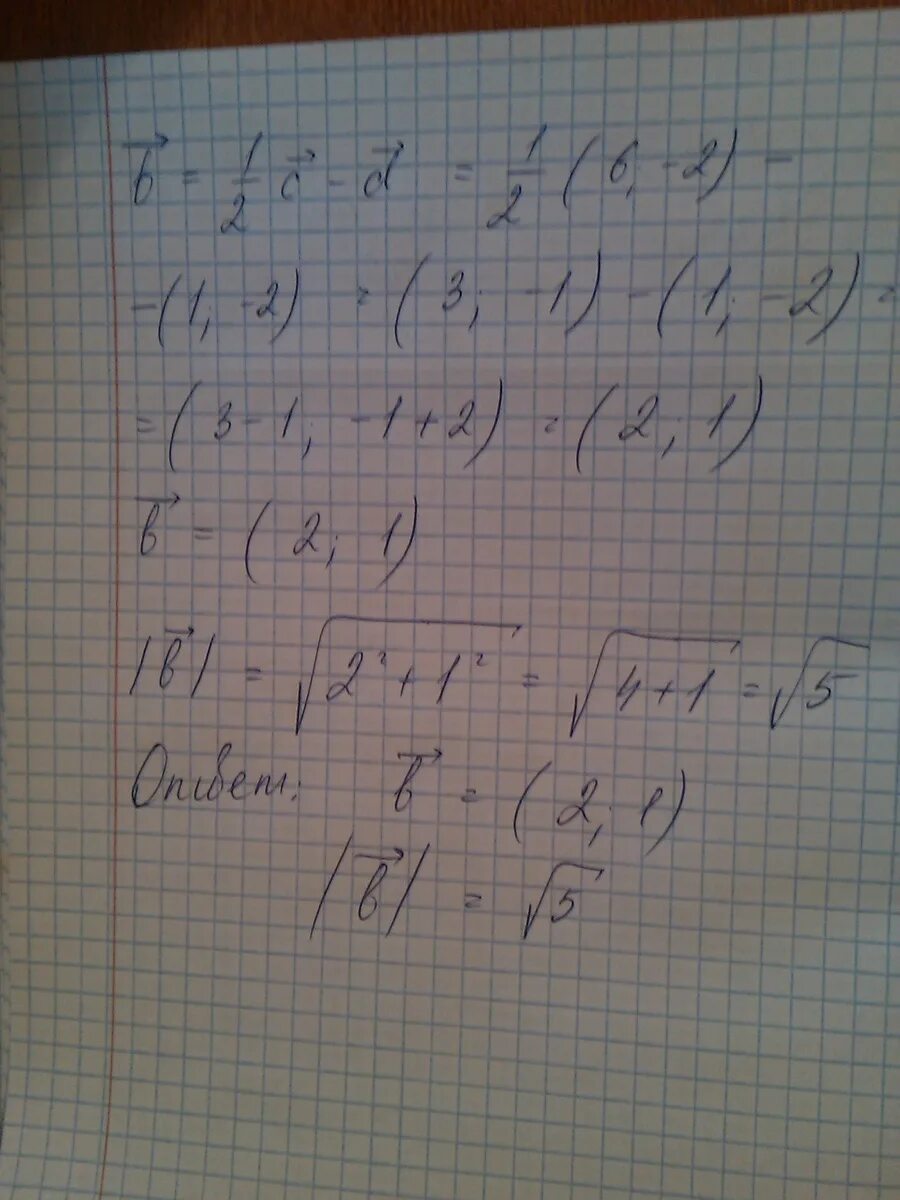 b⃗ = 1/2 c⃗ - d⃗ = 1/2 (6; -2) -
-(1; -2) = (3; -1) - (1; -2) =
= (3-1; -1+2) = (2; 1)
b⃗ = (2; 1)
|b⃗| = √(2²+1²) = √(4+1) = √5
Ответ: b⃗ = (2; 1)
|b⃗| = √5